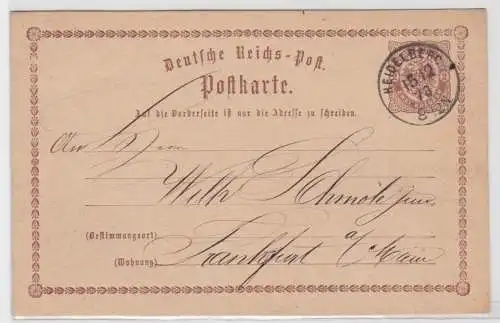 Deutsche Reichs-Post.
Postkarte.
Auf die Vorderseite ist nur die Adresse zu schreiben.
HEIDELBERG
15 12
An Herrn
Wilh. Schmöle jun.
(Bestimmungsort)
Frankfurt a/Main
(Wohnung)